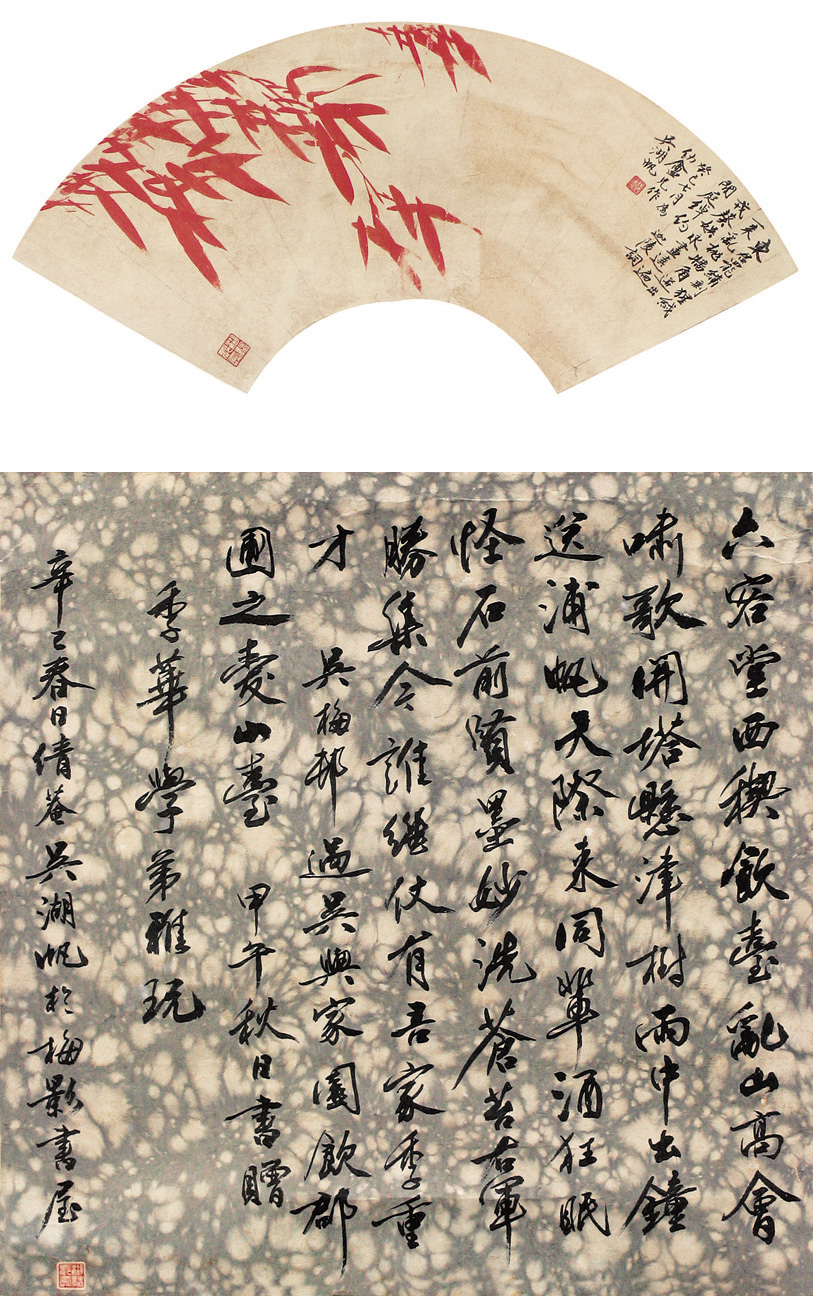 癸巳七月
吳湖帆
六客堂西禊飲臺亂山高會
嘯歌開塔懸津樹雨中出鐘
送浦帆天際來同輩酒狂眠
怪石前賢墨妙洗蒼苔右軍
勝集今誰繼仗有吾家季重
才 吳梅邨過吳興家園飲郡
圃之愛山臺 甲午秋日書贈
季華學弟雅玩
辛巳春日倩菴吳湖帆於梅影書屋